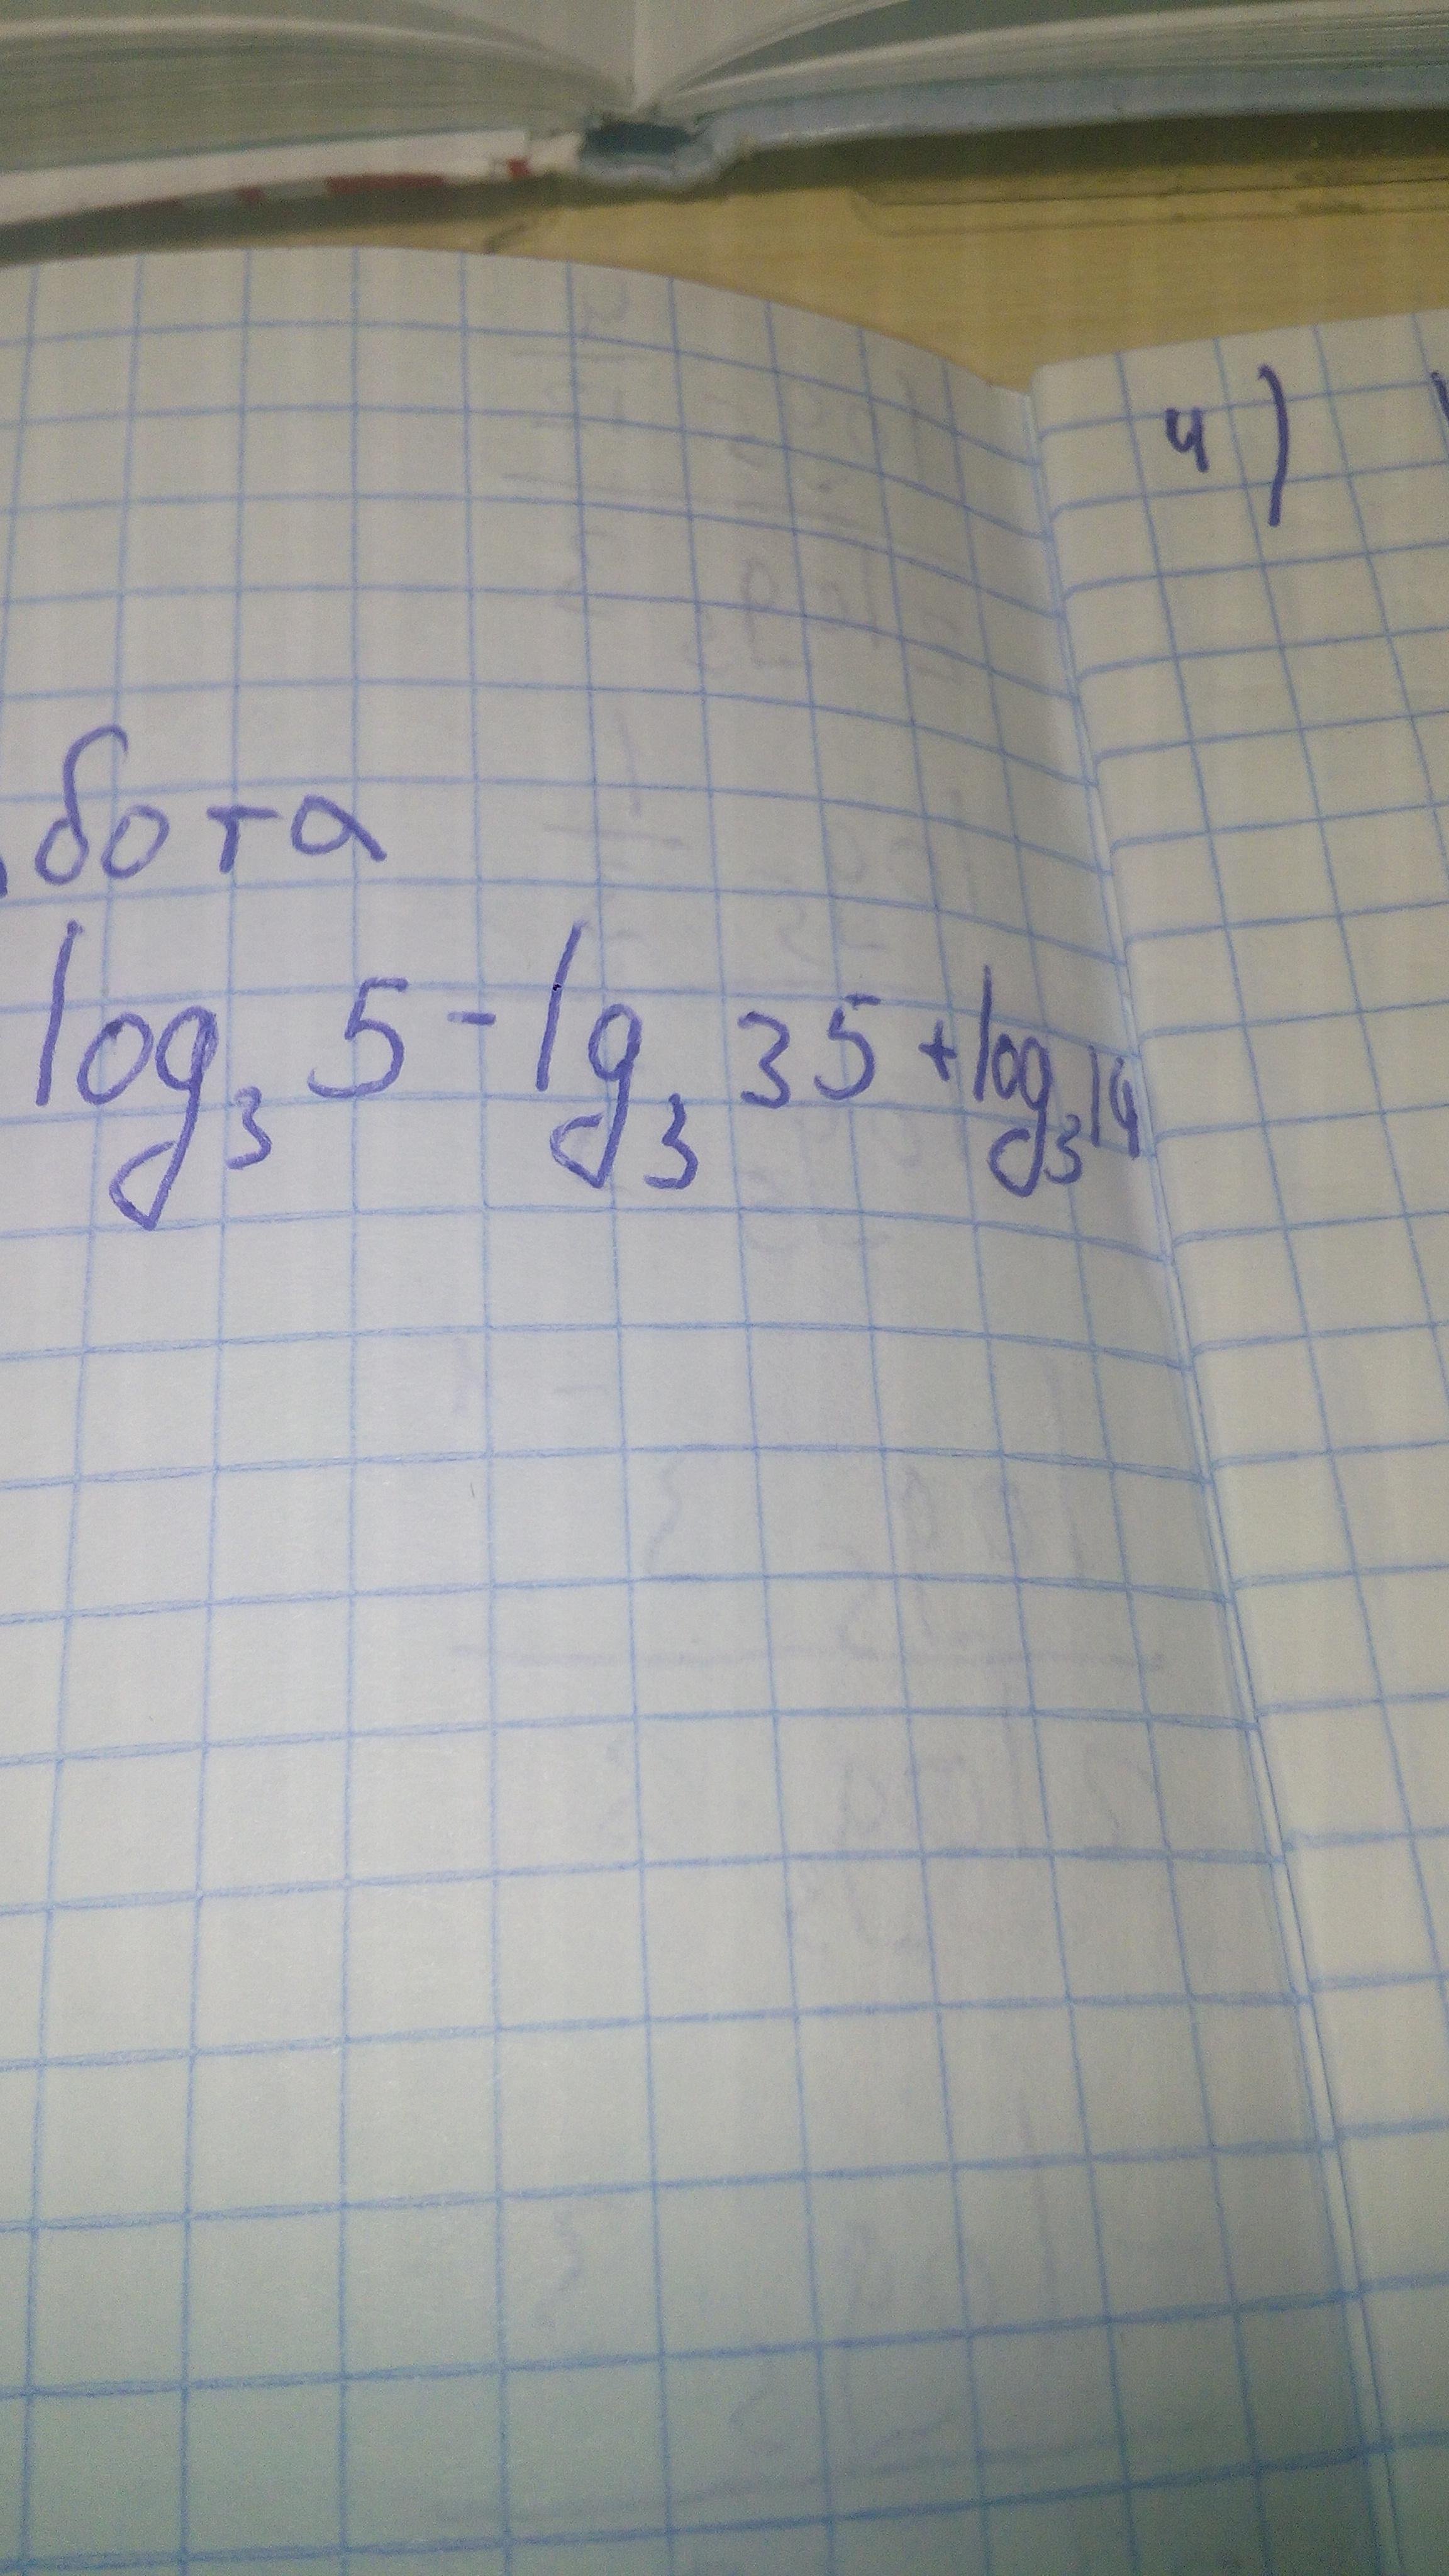 бота
log₃ 5 - lg₃ 35 + log₃ 14
4)